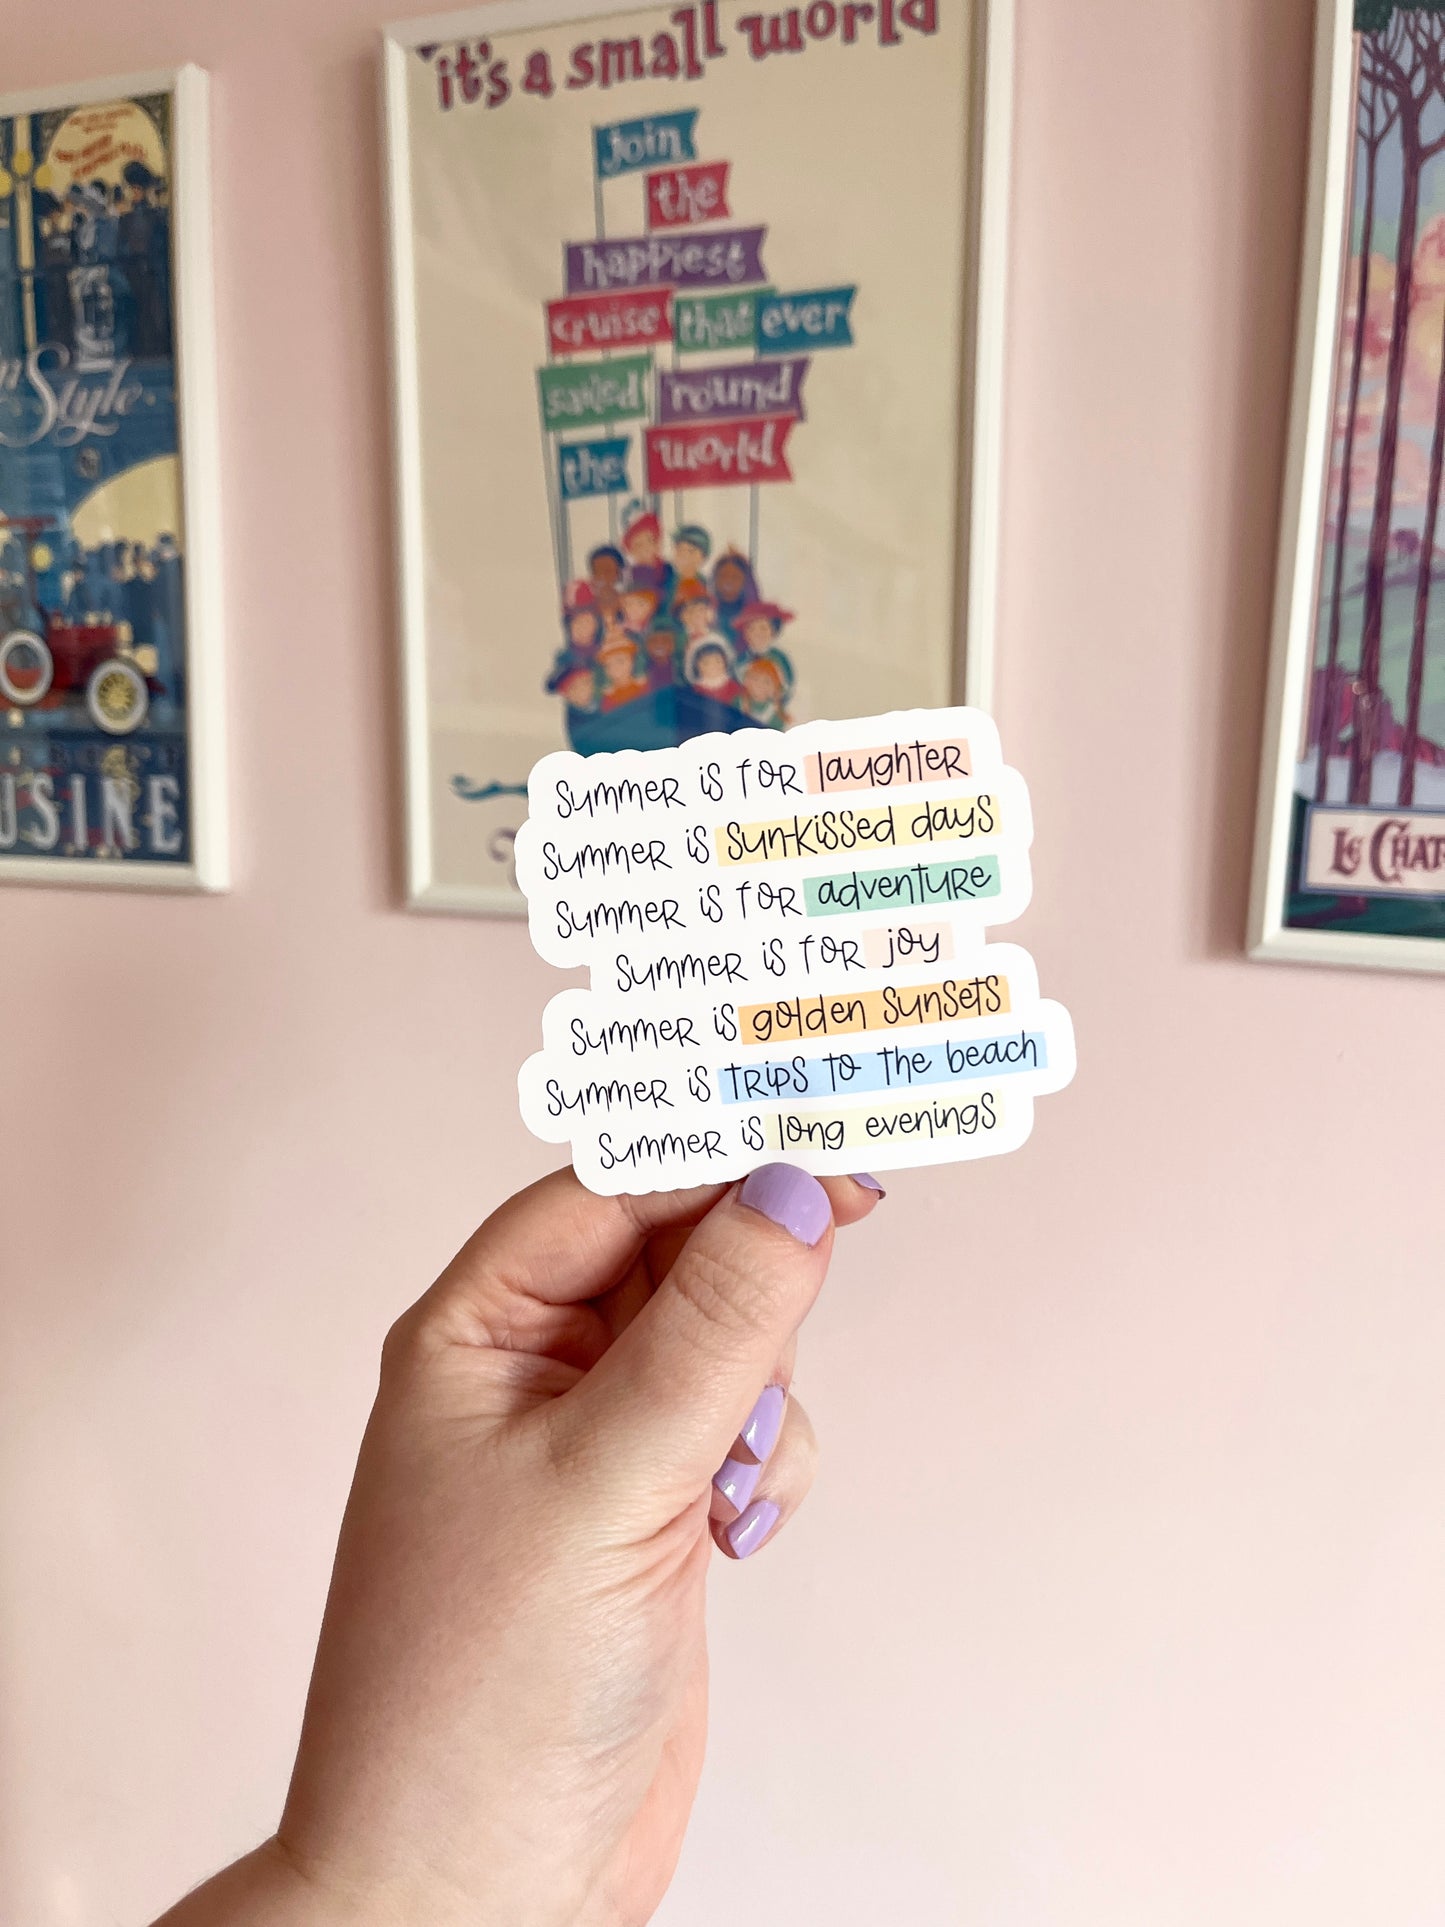 it's a small world
join
the
happiest
cruise that ever
sailed 'round
the world
Style
USINE
Le Chat
summer is for laughter
summer is sun-kissed days
summer is for adventure
summer is for joy
summer is golden sunsets
summer is trips to the beach
summer is long evenings